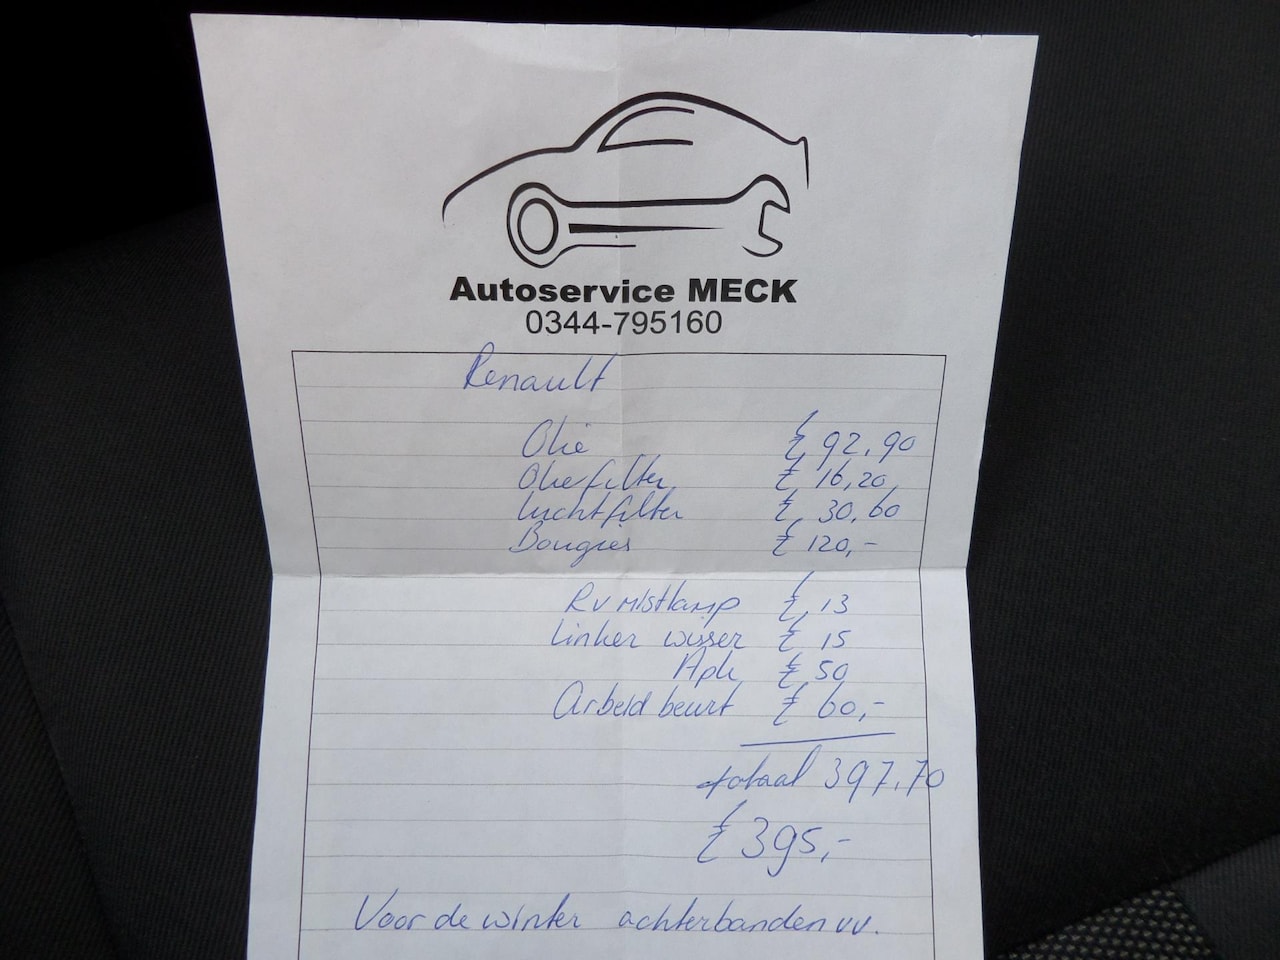 Autoservice MECK
0344-795160
Renault
Olie € 92,90
Oliefilter € 16,20
Luchtfilter € 30,60
Bougies € 120,-
RV mistlamp € 13
Linker wisser € 15
Apk € 50
Arbeid beurt € 60,-
totaal 397,70
€ 395,-
Voor de winter achterbanden vv.